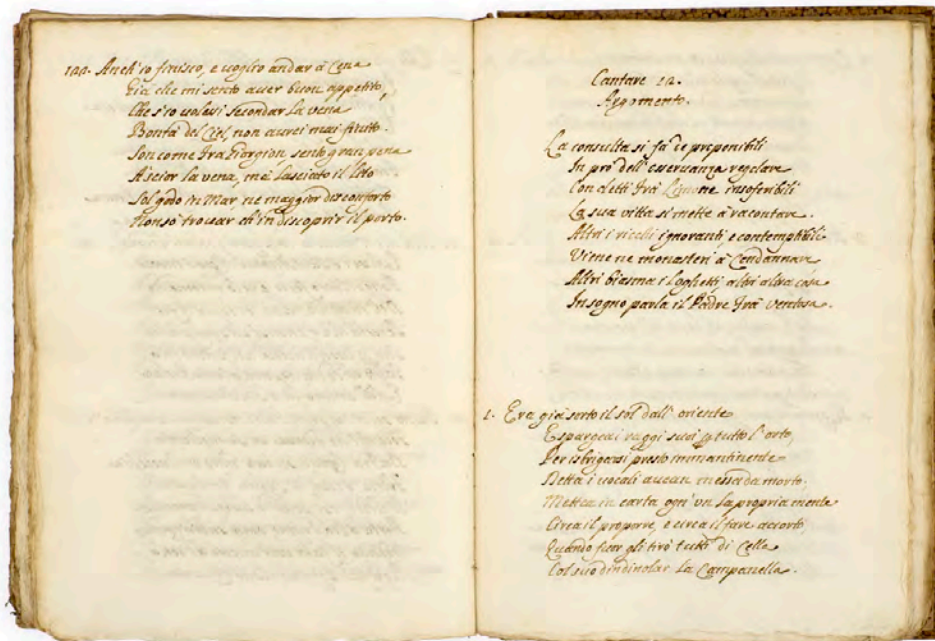 100. Anch'io finisco, e uoglio andar à Cena
Già che mi sento auer buon appetito,
Che s'io uolessi secondar la vena
Bontà del Ciel, non aurei mai finito.
Son come Fra Giorgion sento gran pena
A scior la vena, mà lasciato il lito
Sol godo in Mar, ne maggior disconforto
Non sò trouar ch'in discoprir il porto.
Cantare 12.
Argomento.
La consulta si fà i e preponibili
In prò dell'oseruanza regolare
Con detti Frà Limone insofribili
La sua vitta si mette à racontare.
Altri i ricchi ignoranti, e contemptibili
Viene ne monasteri à Condannare
Altri biasma i loghetti, altri altra cosa
In sogno parla il Padre Frà Ventosa.
1. Era già sorto il sol dall'oriente
E spargea i raggi suoi p tutto l'orto,
Per isbrigarsi presto immantinente
Detta i uocali auean messa da morto,
Mettea in carta ogn'un la propria mente
Circa il proporre, e circa il fare accorto,
Quando fuor gli tirò tutti di Cella
Col suo dindinolar la Campanella.